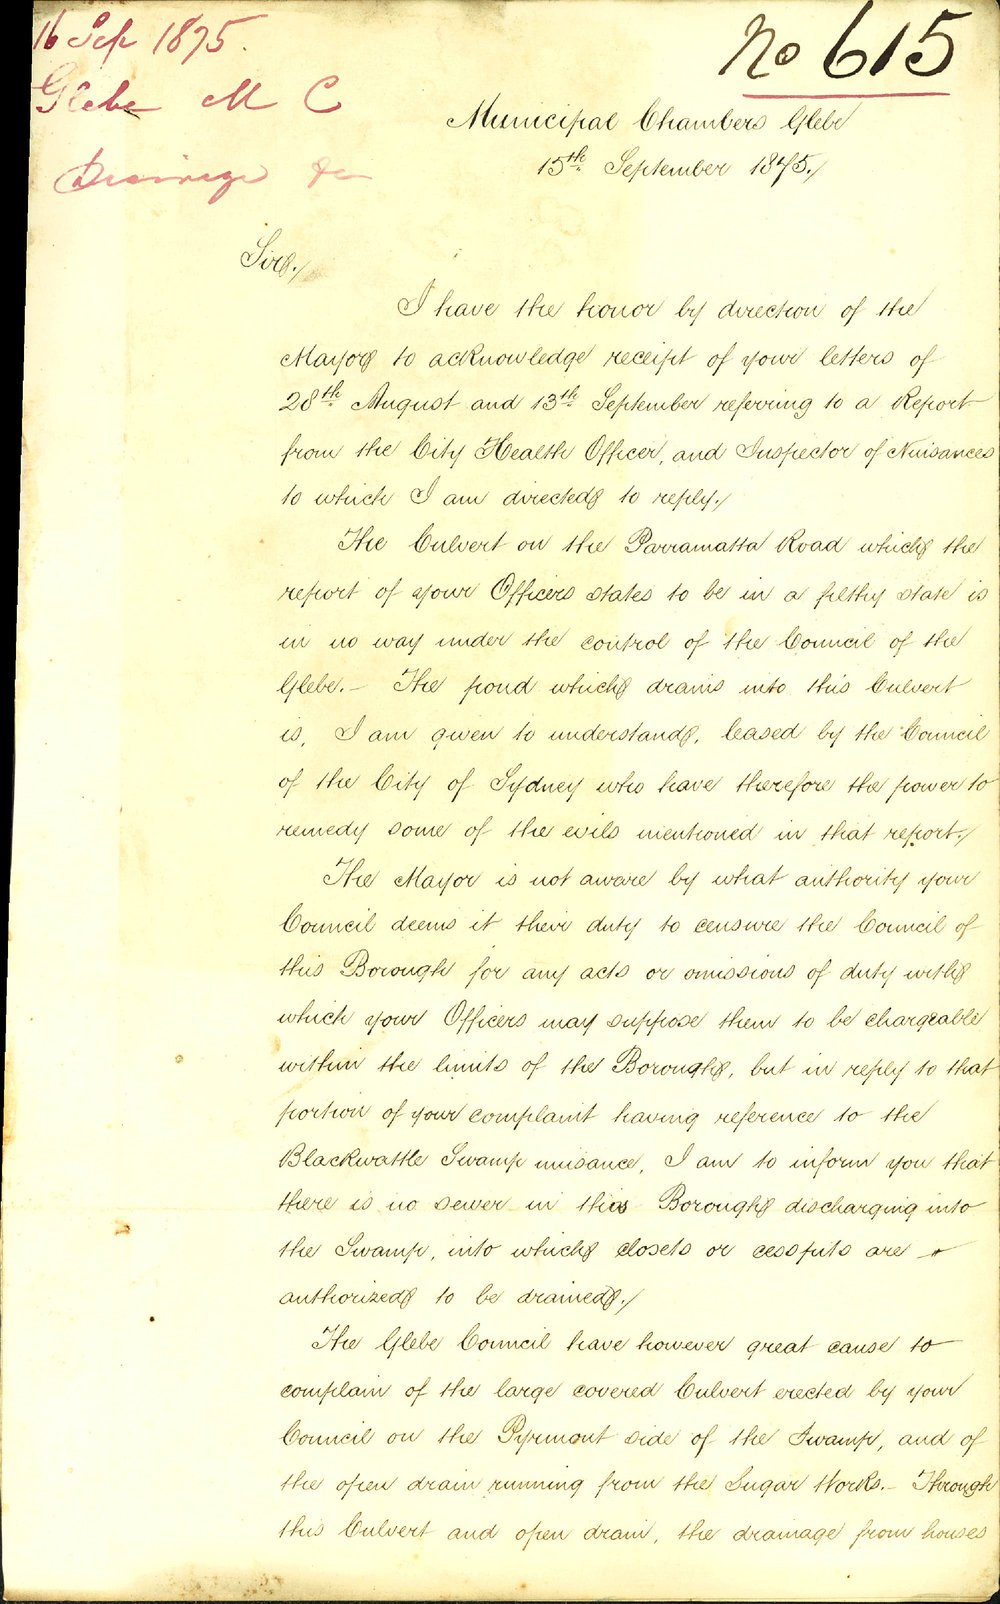 16 Sep 1875.
No 615
Glebe M C
Municipal Chambers Glebe
Drainage &c
15th September 1875./
Sir./
I have the honor by direction of the
Mayor to acknowledge receipt of your letters of
28th August and 13th September referring to a Report
from the City Health Officer, and Inspector of Nuisances
to which I am directed to reply./
The Culvert on the Parramatta Road which the
report of your Officers states to be in a filthy state is
in no way under the control of the Council of the
Glebe.- The pond which drains into this Culvert
is, I am given to understand, leased by the Council
of the City of Sydney who have therefore the power to
remedy some of the evils mentioned in that report./
The Mayor is not aware by what authority your
Council deems it their duty to censure the Council of
this Borough for any acts or omissions of duty with
which your Officers may suppose them to be chargeable
within the limits of the Borough, but in reply to that
portion of your complaint having reference to the
Blackwattle Swamp nuisance, I am to inform you that
there is no sewer in this Borough discharging into
the Swamp, into which closets or cesspits are
authorized to be drained./
The Glebe Council have however great cause to
complain of the large covered Culvert erected by your
Council on the Pyrmont side of the Swamp, and of
the open drain running from the Sugar Works.- Through
this Culvert and open drain, the drainage from houses